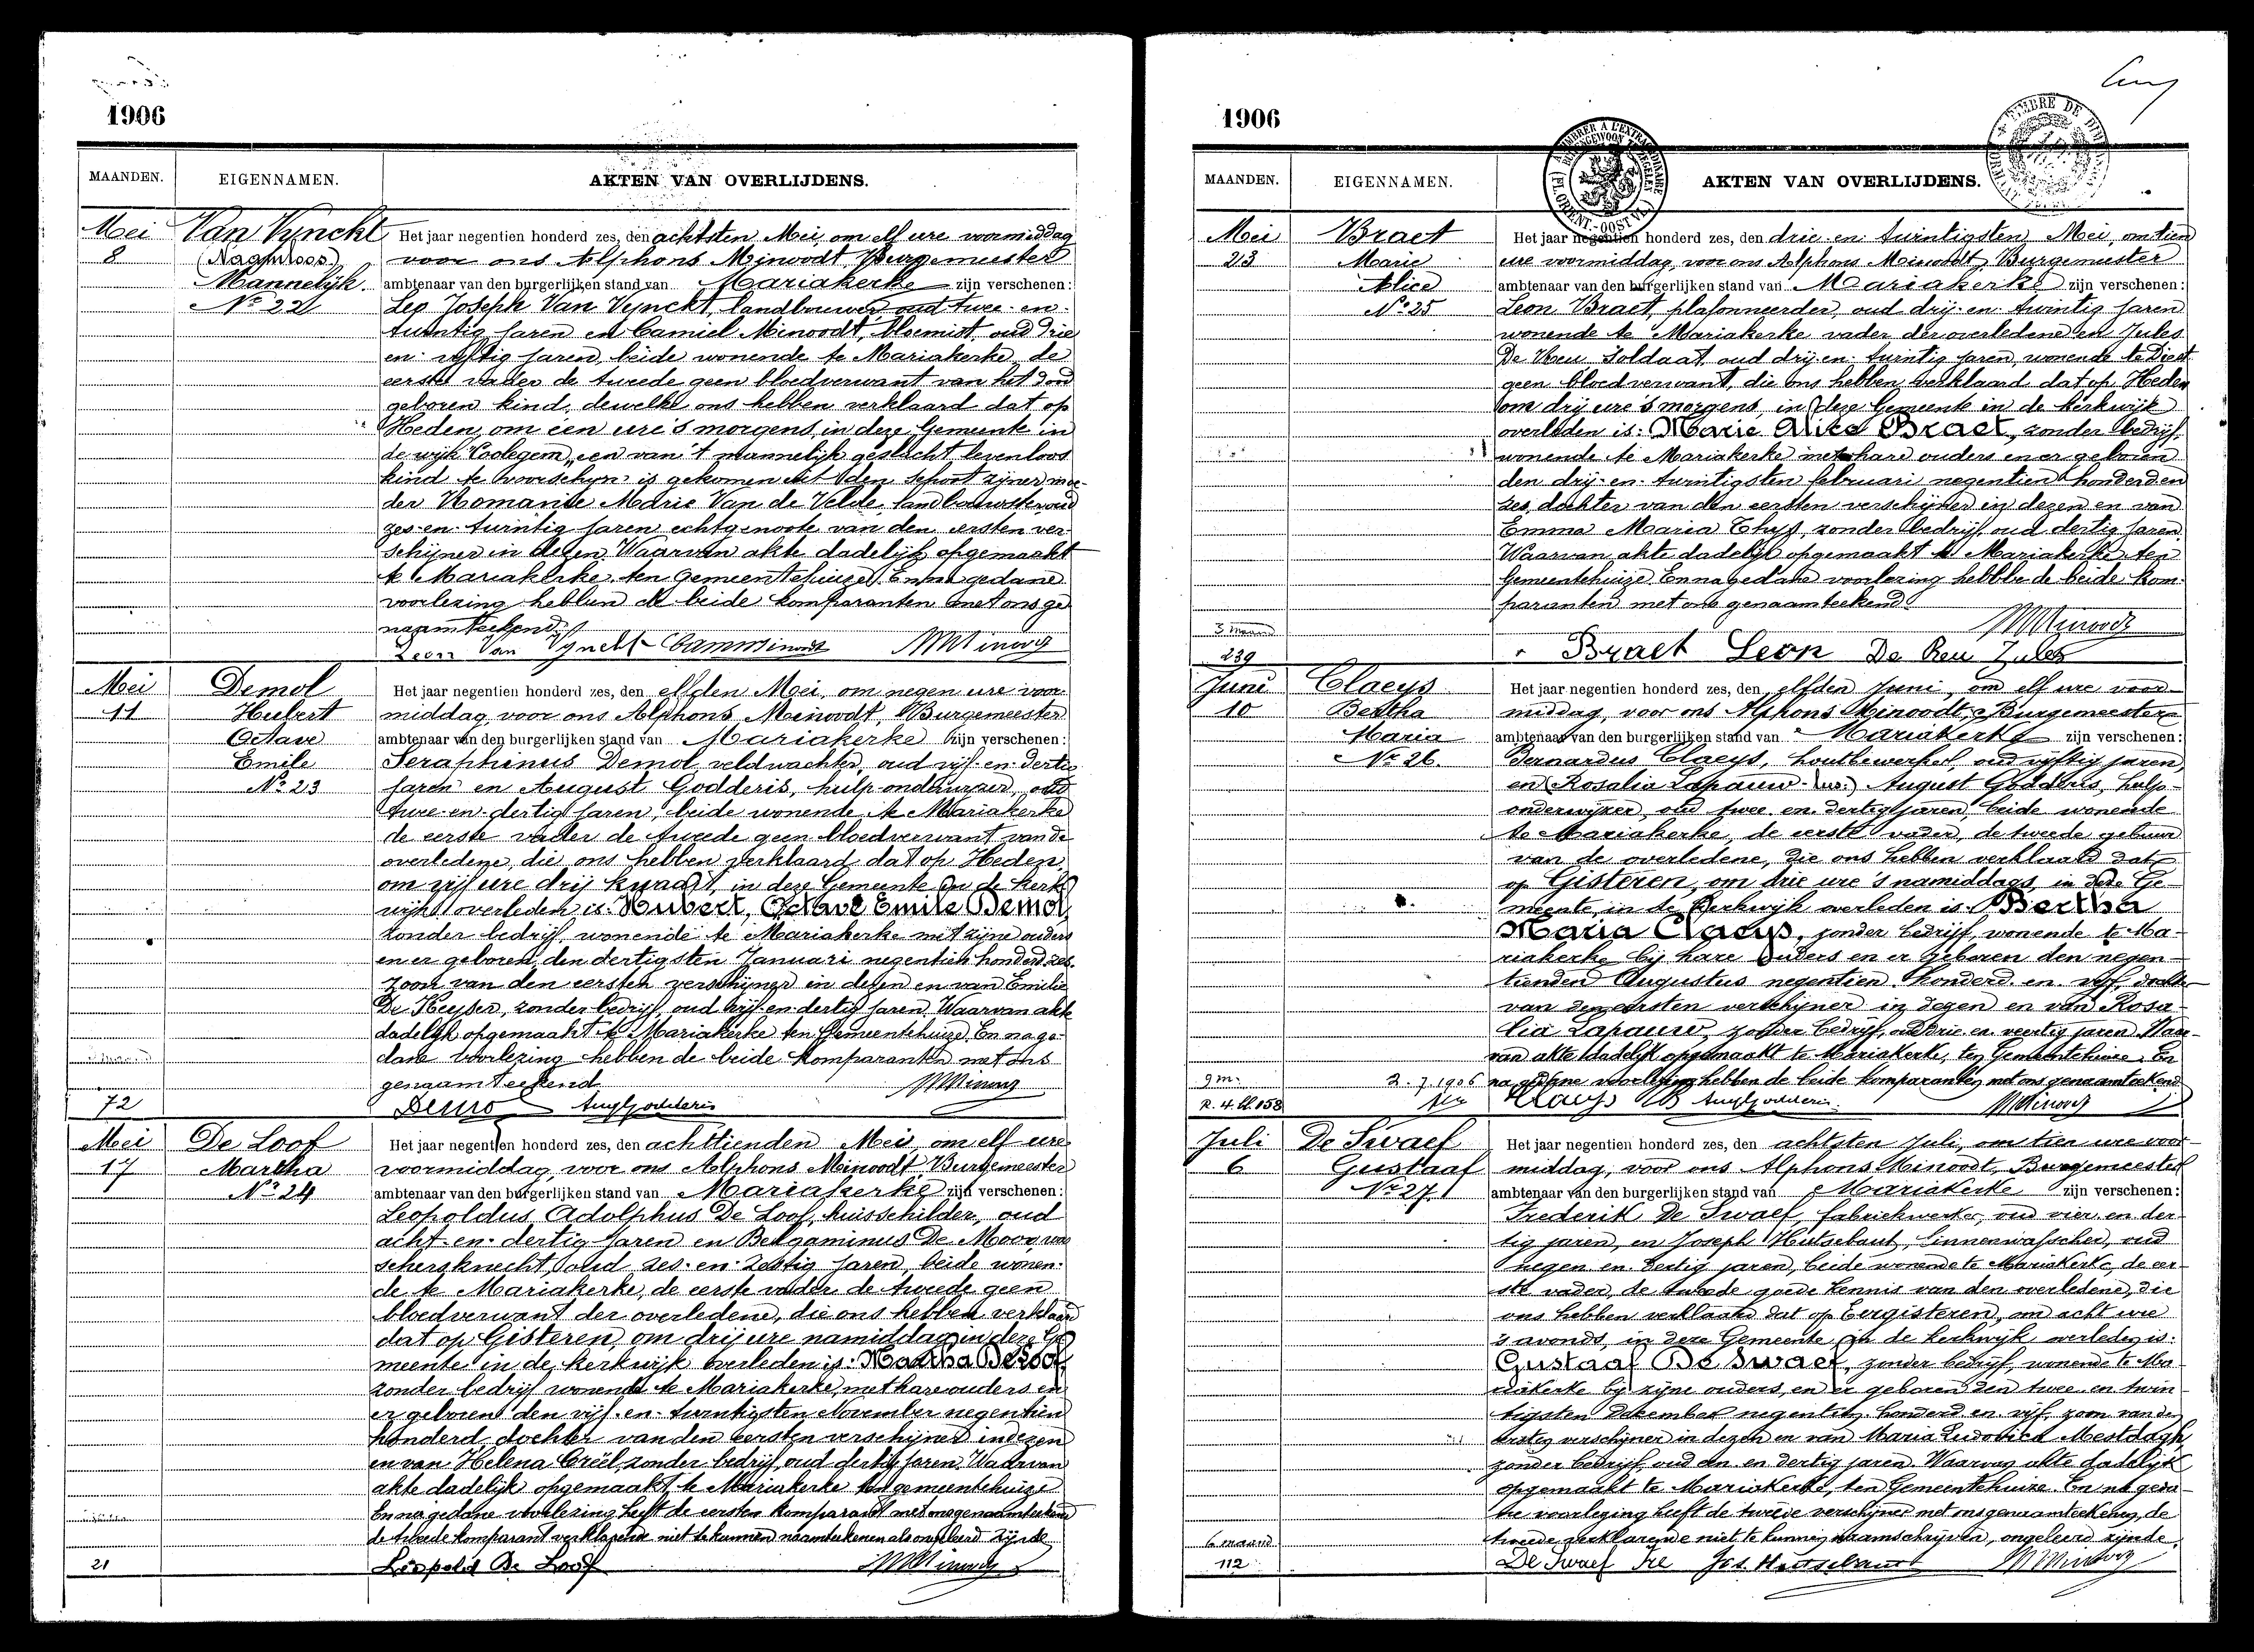 1906
MAANDEN.
EIGENNAMEN.
AKTEN VAN OVERLIJDENS.
Mei
8
Van Vynckt
(Naamloos)
Mannelijk
No 22
Het jaar negentien honderd zes, den achtsten Mei, om elf ure voormiddag
voor ons Alphons Minoodt, Burgemeester
ambtenaar van den burgerlijken stand van Mariakerke zijn verschenen:
Leo Joseph Van Vynckt, landbouwer oud twee-en-
twintig jaren en Camiel Minoodt, bloemist, oud drie
en vijftig jaren, beide wonende te Mariakerke, de
eerste vader de tweede geen bloedverwant van het dood
geboren kind, dewelke ons hebben verklaard dat op
Heden, om één ure 's morgens, in deze Gemeente in
de wijk Coolegem, een van 't mannelijk geslacht levenloos
kind te voorschijn is gekomen uit den schoot zijner moe-
der Romanie Marie Van de Velde, landbouwster oud
zes-en-twintig jaren echtgenoote van den eersten ver-
schijner in dezen. Waarvan akte dadelijk opgemaakt
te Mariakerke ten Gemeentehuize. En na gedane
voorlezing hebben de beide komparanten met ons ge
naamteekend.
Leon Van Vynckt Cam Minoodt AMinoodt
Mei
11
Demol
Hubert
Octave
Emile
No 23
72
Het jaar negentien honderd zes, den elfden Mei, om negen ure voor-
middag, voor ons Alphons Minoodt, Burgemeester
ambtenaar van den burgerlijken stand van Mariakerke zijn verschenen:
Seraphinus Demol veldwachter, oud vijf-en-dertig
jaren en August Godderis, hulp-onderwijzer, oud
twee-en-dertig jaren, beide wonende te Mariakerke
de eerste vader de tweede geen bloedverwant van de
overledene, die ons hebben verklaard dat op Heden,
om vijf ure drij kwaart, in deze Gemeente in de kerk
wijk overleden is: Hubert, Octave Emile Demol,
zonder bedrijf, wonende te Mariakerke met zijne ouders
en er geboren den dertigsten Januari negentien honderd zes.
zoon van den eersten verschijner in dezen en van Emilie
De Keyser, zonder bedrijf, oud vijf-en-dertig jaren. Waarvan akte
dadelijk opgemaakt te Mariakerke ten Gemeentehuize. En na ge-
dane voorlezing hebben de beide komparanten met ons
genaamteekend.
Demol Aug Godderis AMinoodt
Mei
17
De Loof
Martha
No 24
21
Het jaar negentien honderd zes, den achttienden Mei, om elf ure
voormiddag, voor ons Alphons Minoodt, Burgemeester
ambtenaar van den burgerlijken stand van Mariakerke zijn verschenen:
Leopoldus Adolphus De Loof, huisschilder, oud
acht-en-dertig jaren en Benjaminus De Moor,
schersknecht, oud zes-en-zestig jaren, beide wonen-
de te Mariakerke, de eerste vader de tweede geen
bloedverwant der overledene, die ons hebben verklaard
dat op Gisteren, om drij ure namiddag in deze Ge
meente in de kerkwijk overleden is: Martha De Loof,
zonder bedrijf wonende te Mariakerke, met hare ouders en
er geboren den vijf-en-twintigsten November negentien
honderd, dochter van den eersten verschijner in dezen
en van Helena Creël, zonder bedrijf, oud dertig jaren. Waarvan
akte dadelijk opgemaakt te Mariakerke ten gemeentehuize
En na gedane voorlezing heeft de eersten komparant met ons genaamteekend
de tweede komparant verklarende niet te kunnen naamteekenen als ongeleerd zijnde
Leopold De Loof AMinoodt
1906
MAANDEN.
EIGENNAMEN.
AKTEN VAN OVERLIJDENS.
Mei
23
Braet
Marie
Alice
No 25
3 maand
239
Het jaar negentien honderd zes, den drie-en-twintigsten Mei, om tien
ure voormiddag, voor ons Alphons Minoodt, Burgemeester
ambtenaar van den burgerlijken stand van Mariakerke zijn verschenen:
Leon Braet, plafonneerder, oud drij-en-twintig jaren
wonende te Mariakerke vader der overledene en Jules
De Reu Soldaat, oud drij-en-twintig jaren, wonende te Diest
geen bloedverwant, die ons hebben verklaard dat op Heden
om drij ure 's morgens, in deze Gemeente in de kerkwijk
overleden is: Marie Alice Braet, zonder bedrijf,
wonende te Mariakerke met hare ouders en er geboren
den drij-en-twintigsten februari negentien honderd en
zes, dochter van den eersten verschijner in dezen en van
Emma Maria Thys, zonder bedrijf, oud dertig jaren.
Waarvan akte dadelijk opgemaakt te Mariakerke ten
Gemeentehuize. En na gedane voorlezing hebben de beide kom-
paranten met ons genaamteekend.
AMinoodt
Braet Leon De Reu Jules
Juni
10
Claeys
Bertha
Maria
No 26.
9 m.
2.7.1906
Het jaar negentien honderd zes, den elfden Juni, om elf ure voor-
middag, voor ons Alphons Minoodt, Burgemeester
ambtenaar van den burgerlijken stand van Mariakerke zijn verschenen:
Bernardus Claeys, houtbewerker, oud vijftig jaren,
en Rosalia Lapauw August Godderis, hulp-
onderwijzer, oud twee en dertig jaren, beide wonende
te Mariakerke, de eerste vader, de tweede gebuur
van de overledene, die ons hebben verklaard dat
op Gisteren, om drie ure 's namiddags, in deze Ge-
meente, in de kerkwijk overleden is: Bertha
Maria Claeys, zonder bedrijf, wonende te Ma-
riakerke bij hare ouders en er geboren den negen-
tienden Augustus negentien honderd en vijf, dochter
van den eersten verschijner in dezen en van Rosa-
lia Lapauw, zonder bedrijf, oud drie en veertig jaren. Waar-
van akte dadelijk opgemaakt te Mariakerke, ten Gemeentehuize. En
na gedane voorlezing hebben de beide komparanten met ons genaamteekend
Claeys B Aug Godderis AMinoodt
Juli
6
De Swaef
Gustaaf
No 27.
6 maand
112
Het jaar negentien honderd zes, den achtsten Juli, om tien ure voor-
middag, voor ons Alphons Minoodt, Burgemeester
ambtenaar van den burgerlijken stand van Mariakerke zijn verschenen:
Frederik De Swaef, fabriekwerker, oud vier en der-
tig jaren, en Joseph Hutsebaut, linnenwasscher, oud
negen en dertig jaren, beide wonende te Mariakerke, de eer-
ste vader, de tweede goede kennis van den overledene, die
ons hebben verklaard dat op Eergisteren, om acht ure
's avonds, in deze Gemeente in de kerkwijk overleden is:
Gustaaf De Swaef, zonder bedrijf, wonende te Ma-
riakerke bij zijne ouders, en er geboren den twee en twin-
tigsten December negentien honderd en vijf, zoon van den
eersten verschijner in dezen en van Maria Ludovica Mestdagh,
zonder bedrijf, oud en dertig jaren. Waarvan akte dadelijk
opgemaakt te Mariakerke, ten Gemeentehuize. En na geda-
ne voorlezing heeft de tweede verschijner met ons genaamteekend, de
tweede verklarende niet te kunnen naamschrijven, ongeleerd zijnde.
De Swaef Fre Jos. Hutsebaut AMinoodt